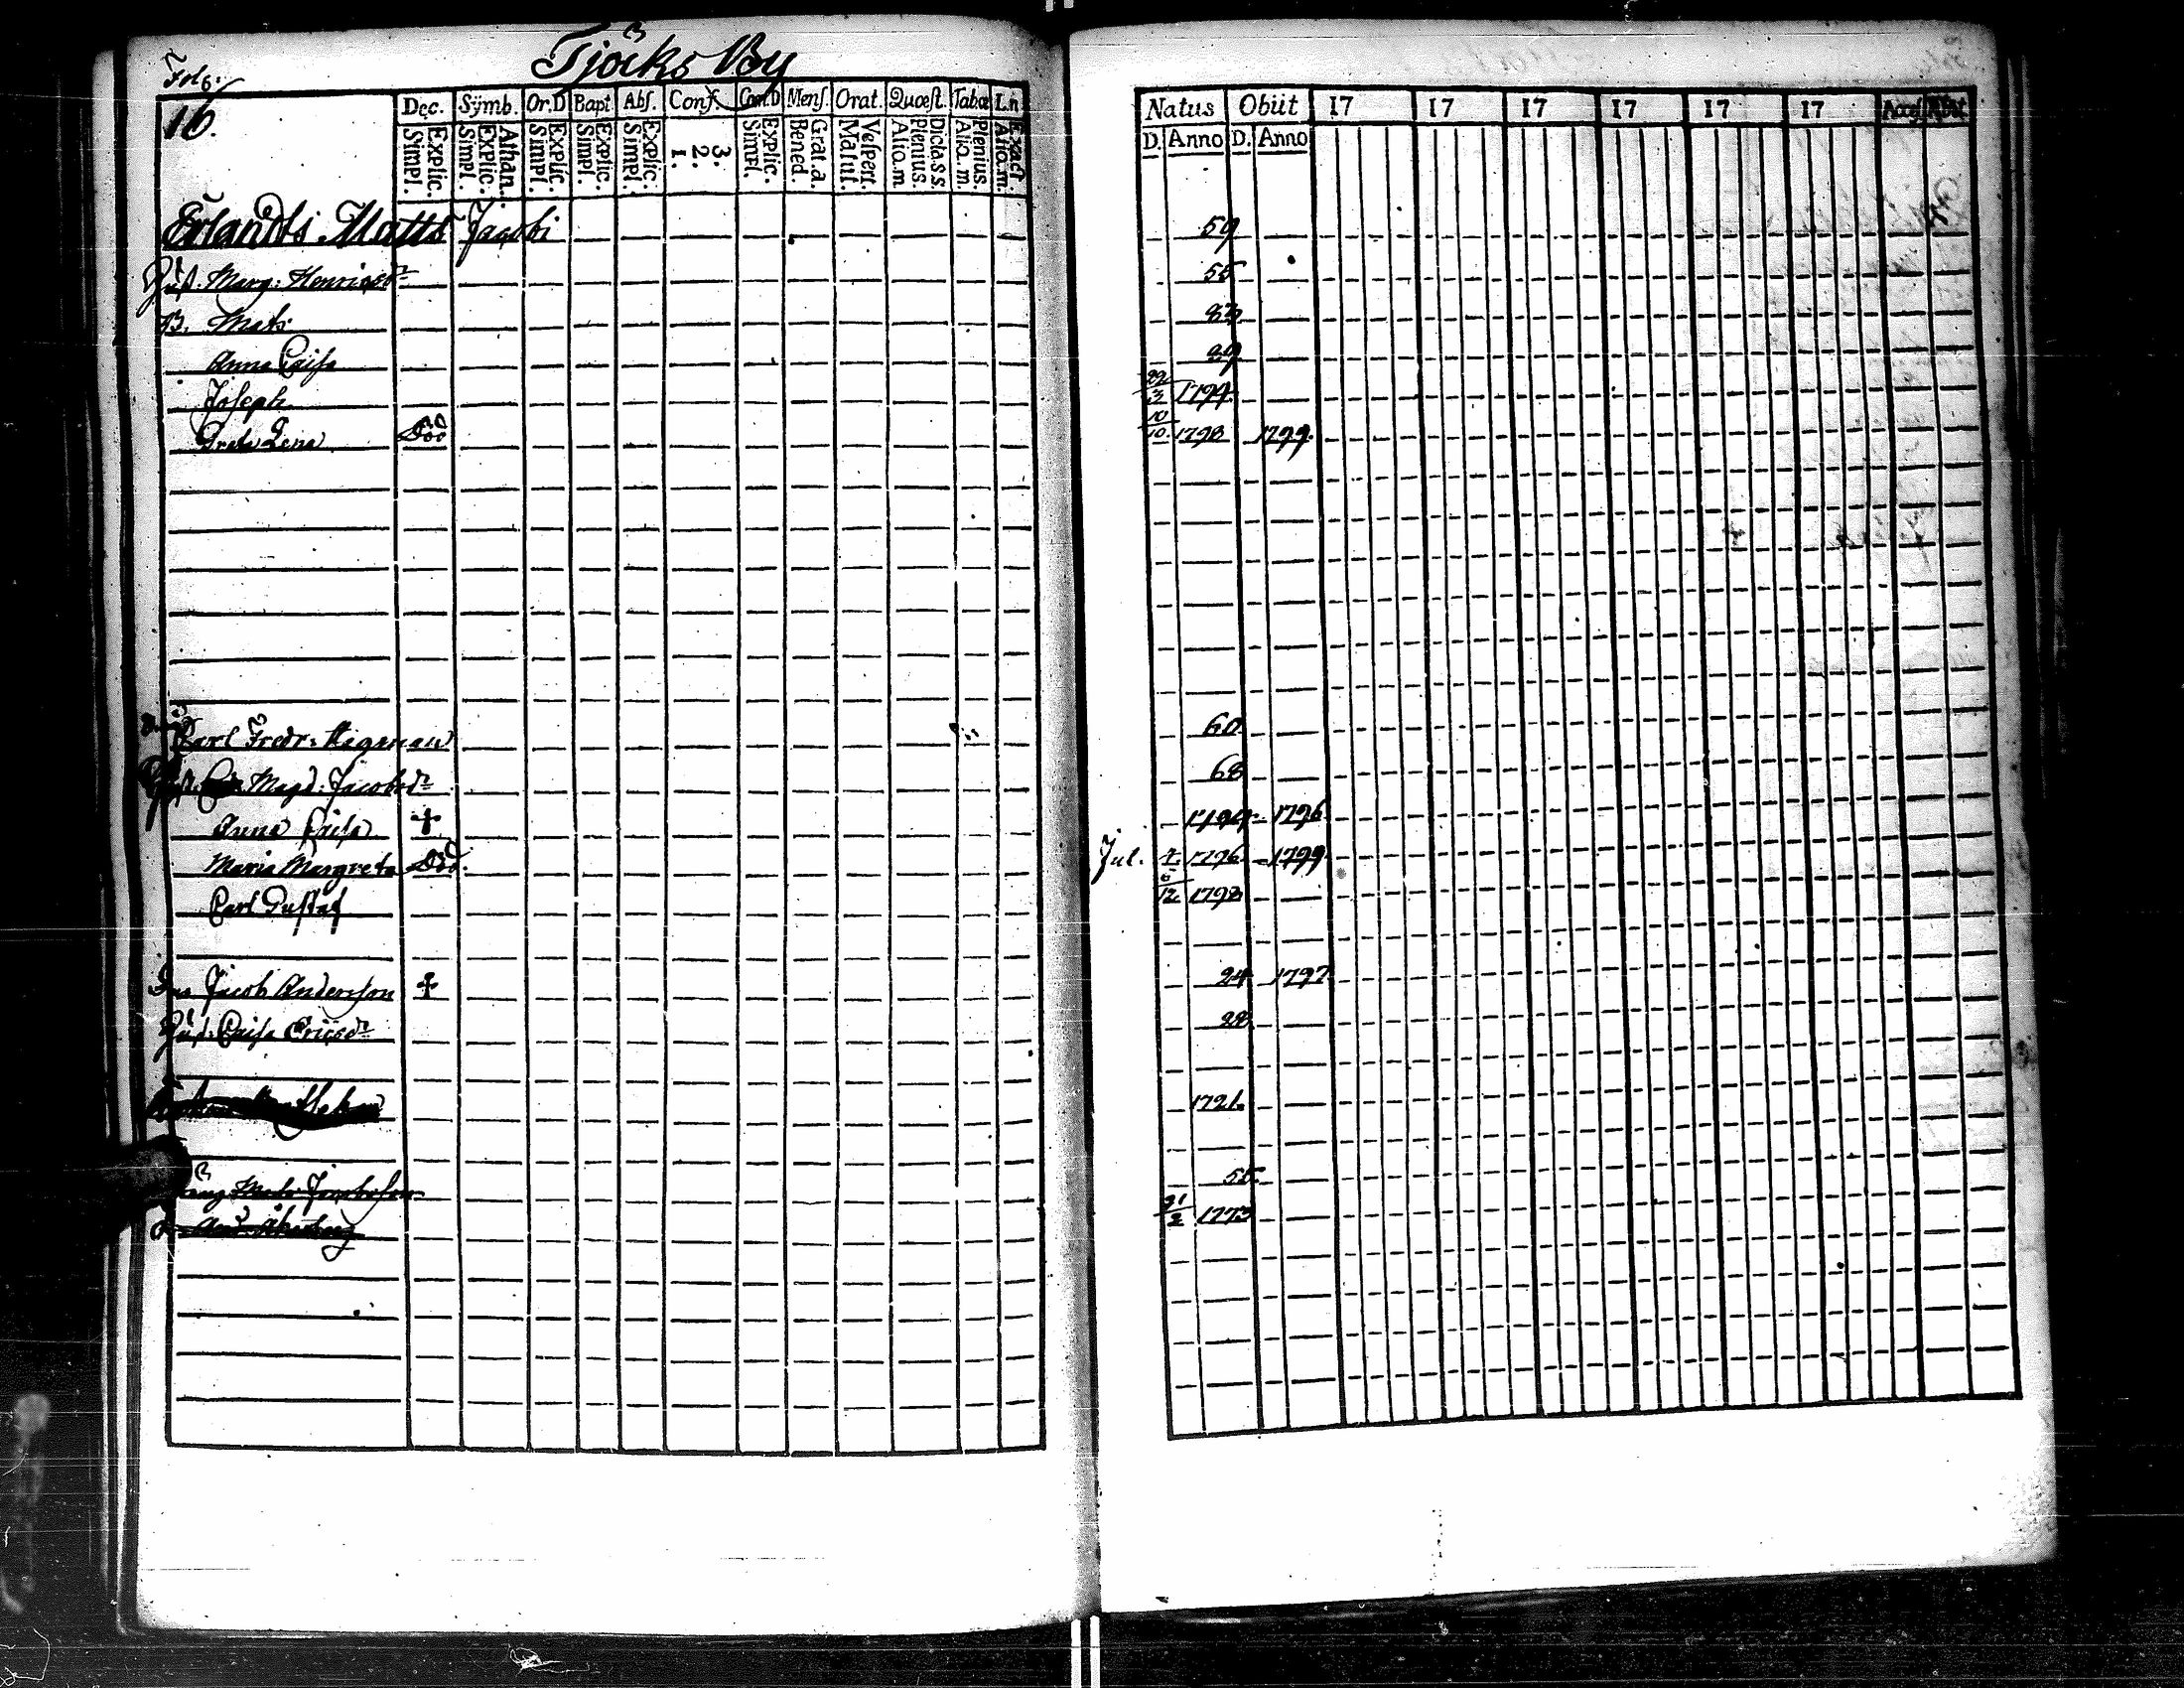 Tjöcks By
Fol. 6.
16.
Dec. Symb. Or.D Bapt Abs. Conf. Con.D Mens. Orat. Quæst. Tabæ L.n
Explic. Simpl. Athan. Explic. Simpl. Explic. Simpl. Explic. Simpl. Explic. Simpl. 3. 2. 1. Explic. Simpl. Grat.a. Bened. Vespert. Matut. Dicta.S.S. Plenius. Alio.m. Plenius. Alio.m. Exact. Alio.m.
Natus Obiit 17 17 17 17 17 17 Acces Abit
D. Anno D. Anno
Erlandts Matts Jacobi 59
Hust. Marg: Henricsdr 55
B. Mats 83
Anna Caisa 89
Joseph 22/3 1794
Greta Lena Död 10/10. 1798 1799
Carl Fredr: Hagman 60
Hust. Magd: Jacobsdr 68
Anna Caisa + 1794 1796
Maria Margreta Död. Jul. 7 1796 1799
Carl Gustaf 6/12 1798
Jacob Andersson + 24 1797
Hust: Caisa Ericsdr 28
1721.
Mats Jacobsson 55.
And. Åkerberg 21/2 1773